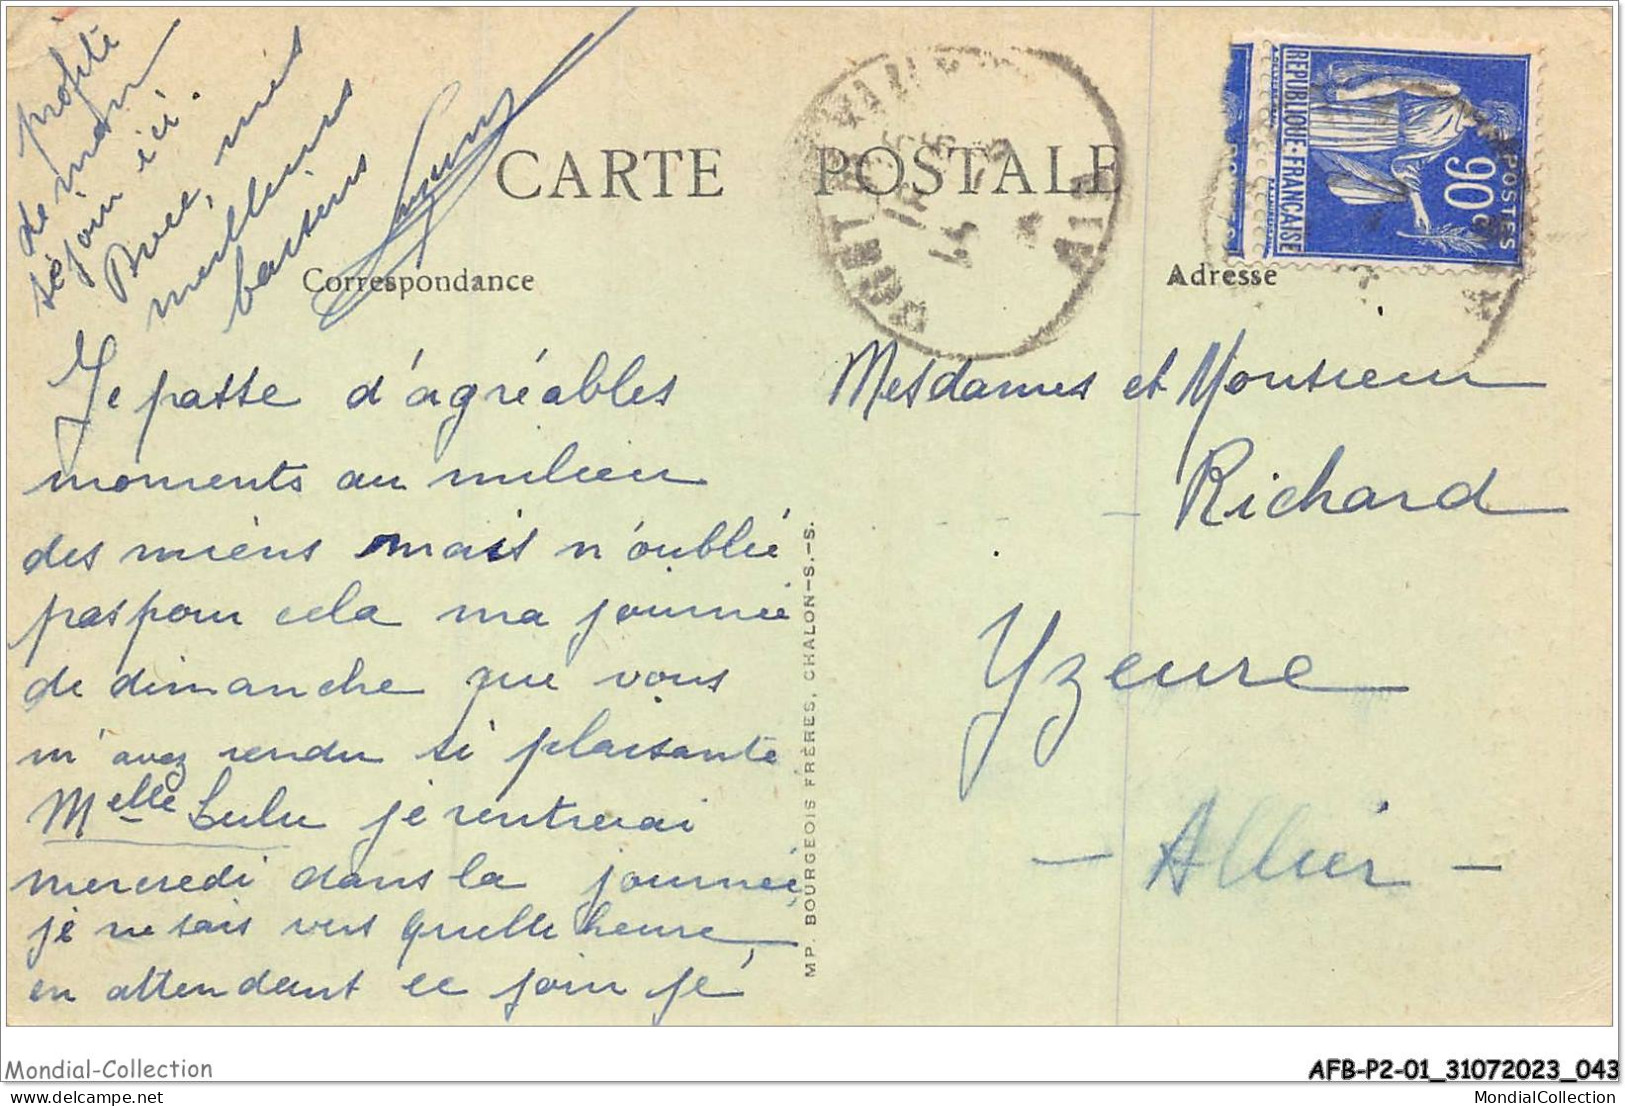 CARTE POSTALE
Correspondance
Adresse
REPUBLIQUE-FRANÇAISE
POSTES
90c
PONT DE VAUX
AIN
Je passe d'agréables
moments au milieu
des miens mais n'oublie
pas pour cela ma journée
de dimanche que vous
m'avez rendu si plaisante
Melle Lulu je rentrerai
mercredi dans la journée,
je ne sais vers quelle heure,
en attendant ce jour je
profite
de mon
séjour ici.
Avec, mes
meilleurs
baisers
Mesdames et Monsieur
Richard
Yzeure
- Allier -
MP. BOURGEOIS FRÈRES, CHALON-S.-S.
Mondial-Collection
AFB-P2-01_31072023_043
MondialCollection